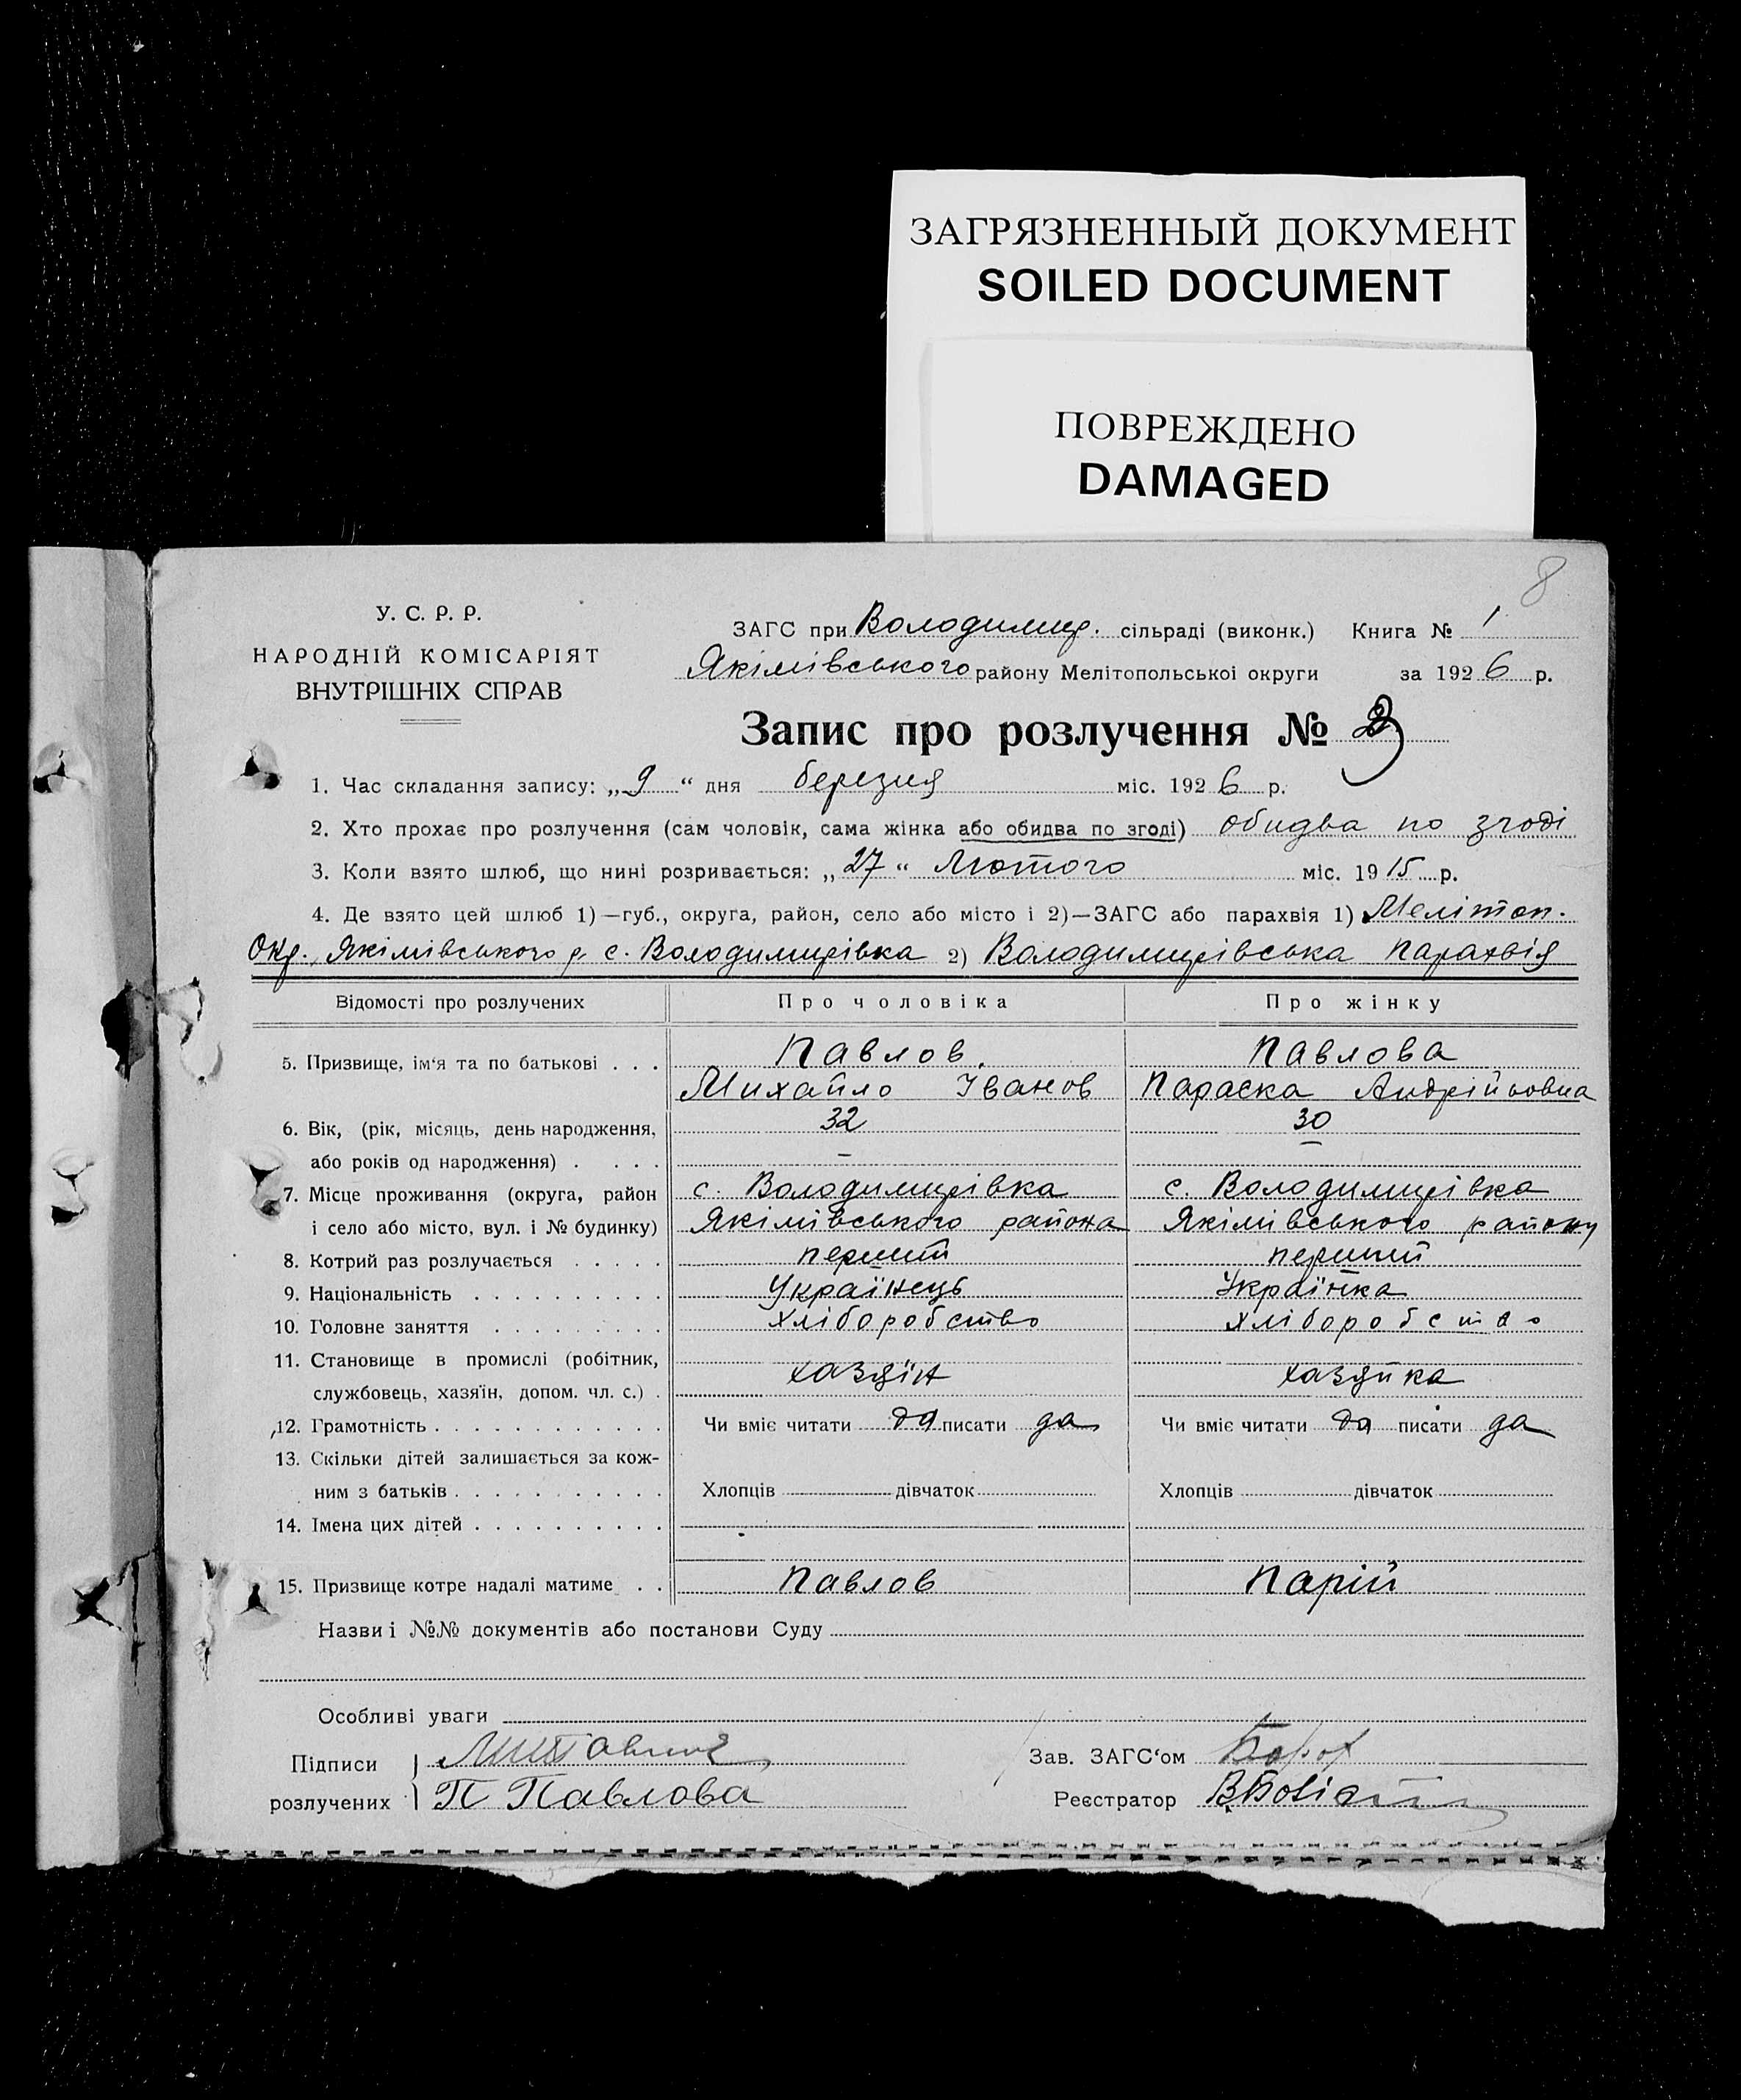 ЗАГРЯЗНЕННЫЙ ДОКУМЕНТ
SOILED DOCUMENT
ПОВРЕЖДЕНО
DAMAGED
8
У. С. Р. Р.
НАРОДНІЙ КОМІСАРІЯТ
ВНУТРІШНІХ СПРАВ
ЗАГС при Володимир. сільраді (виконк.) Книга № 1
Якімівського району Мелітопольської округи за 1926 р.
Запис про розлучення №
1. Час складання запису: „9“ дня березня міс. 1926 р.
2. Хто прохає про розлучення (сам чоловік, сама жінка або обидва по згоді) обидва по згоді
3. Коли взято шлюб, що нині розривається: „27“ Лютого міс. 1915 р.
4. Де взято цей шлюб 1)—губ., округа, район, село або місто і 2)—ЗАГС або парахвія 1) Мелітоп.
Окр. Якімівського р. с. Володимирівка 2) Володимирівська парахвія
Відомості про розлучених Про чоловіка Про жінку
5. Призвище, ім'я та по батькові . . . Павлов. Павлова
Михайло Іванов Параска Андрійовна
6. Вік, (рік, місяць, день народження, 32 30
або років од народження) . . . . – –
7. Місце проживання (округа, район с. Володимирівка с. Володимирівка
і село або місто, вул. і № будинку) Якімівського района Якімівського району
8. Котрий раз розлучається . . . . . перший перший
9. Національність . . . . . . . . . . Українець Українка
10. Головне заняття . . . . . . . . . Хліборобство Хліборобство
11. Становище в промислі (робітник,
службовець, хазяїн, допом. чл. с.) . хазяїн хазяйка
12. Грамотність . . . . . . . . . . . . Чи вміє читати да писати да Чи вміє читати да писати да
13. Скільки дітей залишається за кож-
ним з батьків . . . . . . . . . . . Хлопців дівчаток Хлопців дівчаток
14. Імена цих дітей . . . . . . . . . .
15. Призвище котре надалі матиме . . Павлов Парій
Назви і №№ документів або постанови Суду
Особливі уваги
Підписи Зав. ЗАГС'ом
розлучених П Павлова Реєстратор